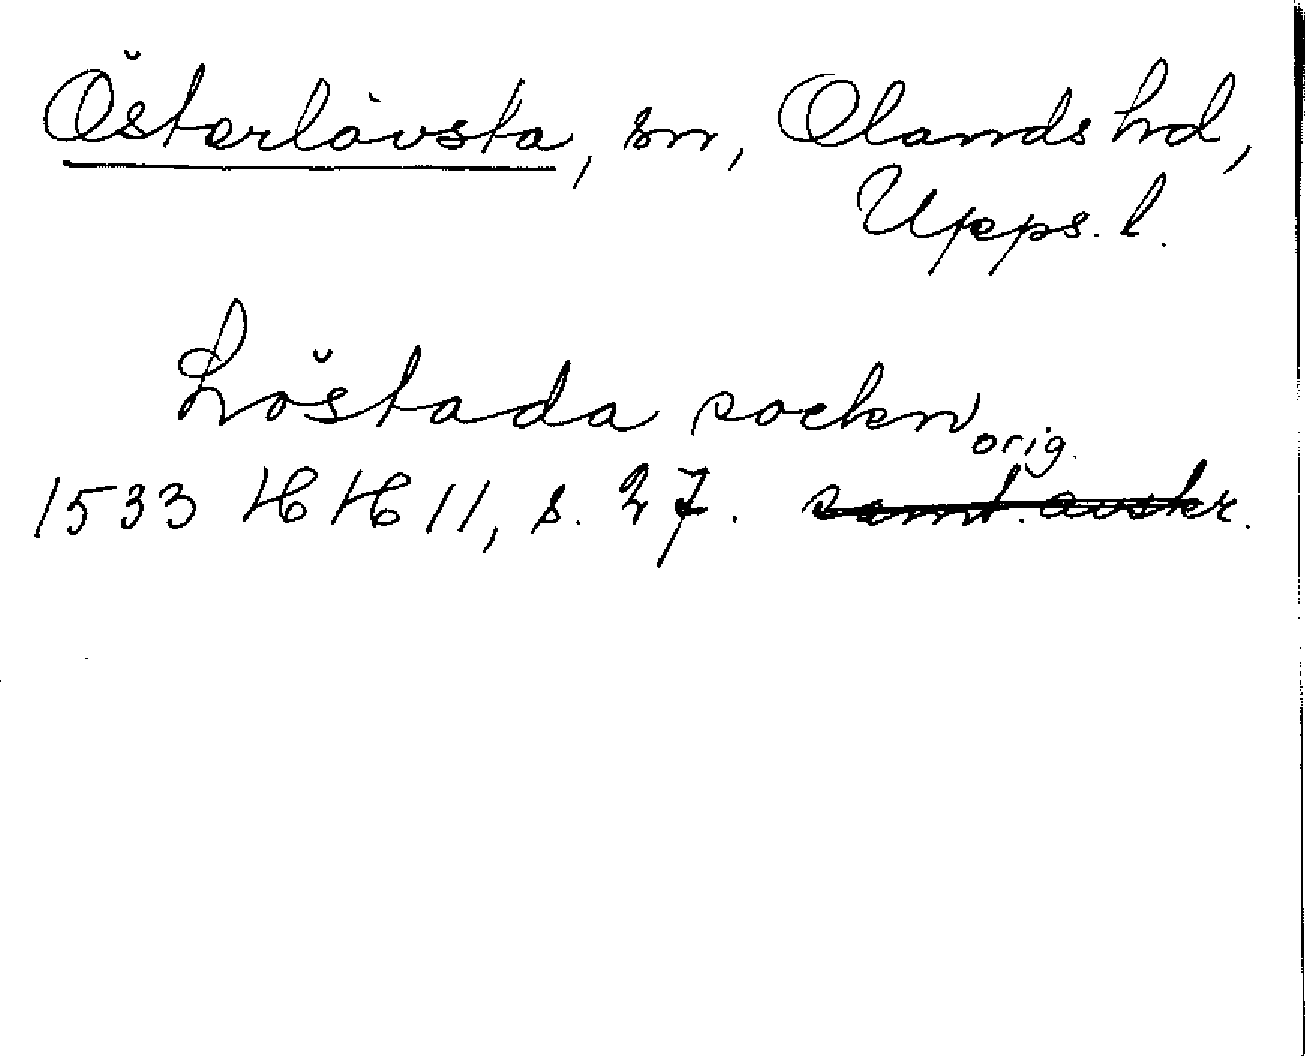 Österlövsta, sn, Olands hd,
Upps. l.
Löstada sockn
orig.
1533 HH 11, s. 27. samt. avskr.